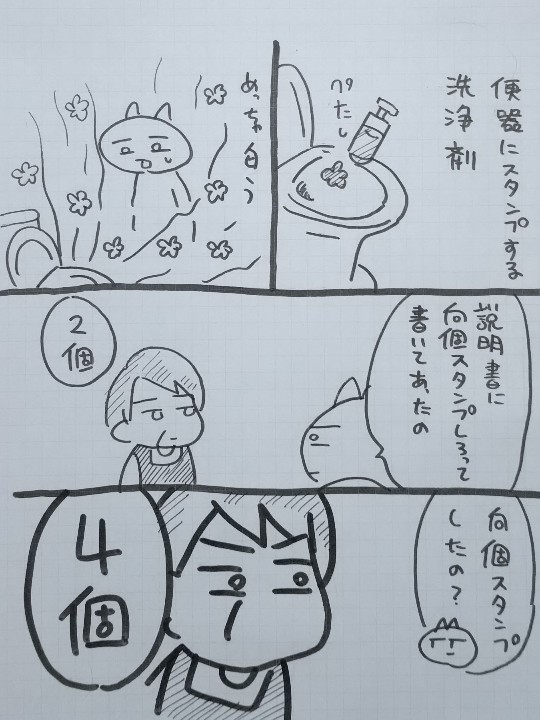 便器にスタンプする
洗浄剤
ぺたし
めっちゃ匂う
説明書に
何個スタンプしろって
書いてあったの
2個
何個スタンプ
したの?
4個